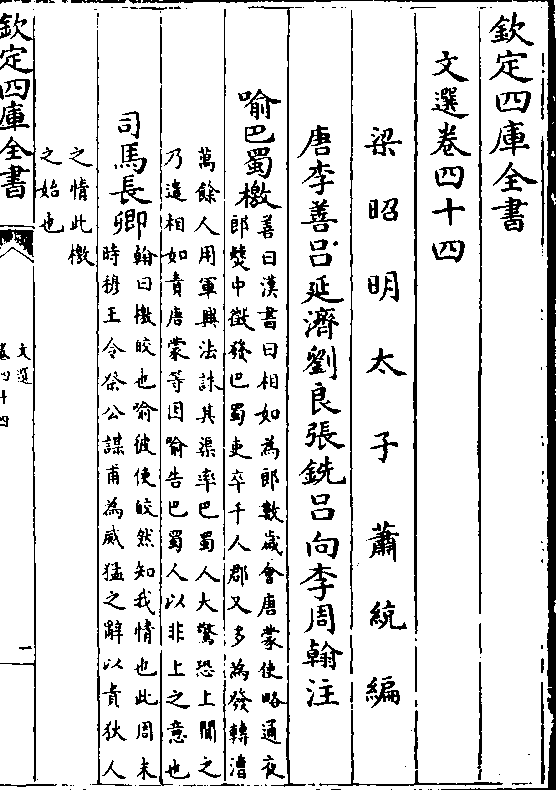 欽定四庫全書
文選卷四十四
梁昭明太子蕭統編
唐李善呂延濟劉良張銑呂向李周翰注
喻巴蜀檄
善曰漢書曰相如為郎數歲會唐蒙使略通夜
郎僰中徵發巴蜀吏卒千人郡又多為發轉漕
萬餘人用軍興法誅其渠率巴蜀人大驚恐上聞之
乃遣相如責唐蒙等因喻告巴蜀人以非上之意也
司馬長卿
翰曰檄皎也喻彼使皎然知我情也此周末
時穆王令祭公謀甫為威猛之辭以責狄人
之情此檄
之始也
欽定四庫全書
文選
卷四十四
一